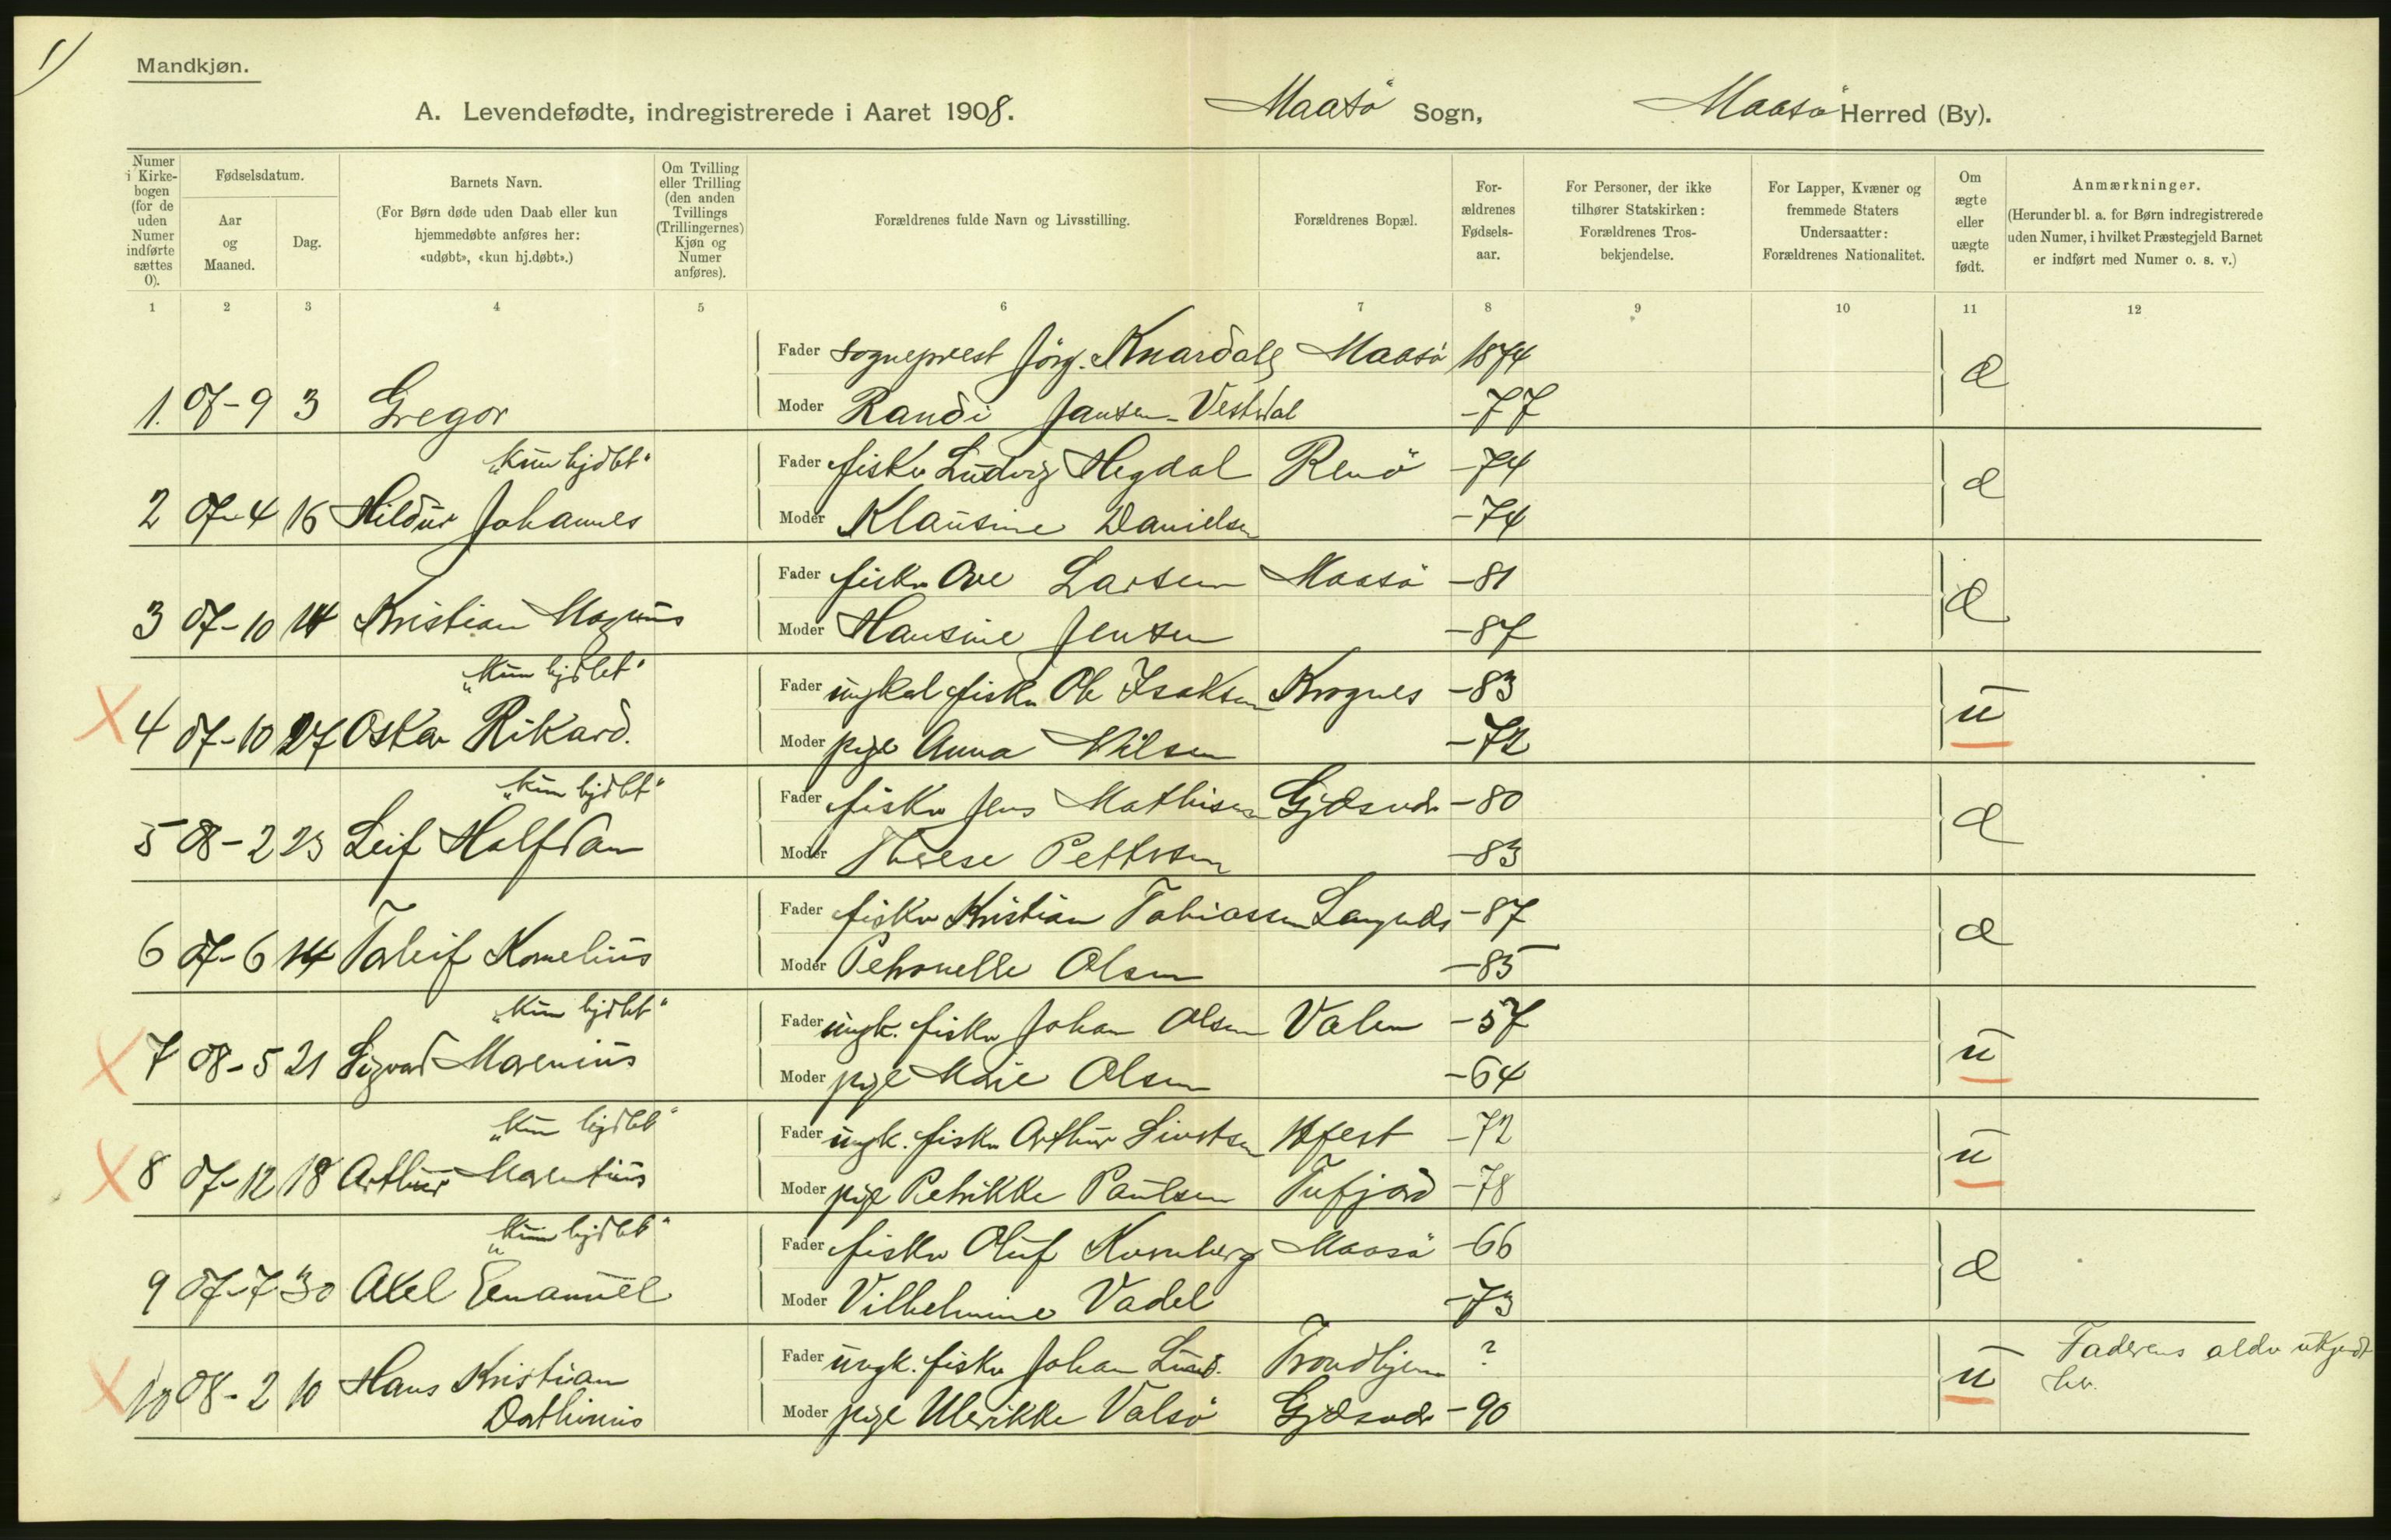 1)
Mandkjøn.
A. Levendefødte, indregistrerede i Aaret 1908. Maasö Sogn, Maasö Herred (By).
Numer i Kirkebogen (for de uden Numer indførte sættes 0).
Fødselsdatum.
Aar og Maaned.
Dag.
Barnets Navn.
(For Børn døde uden Daab eller kun hjemmedøbte anføres her: «udøbt», «kun hj.døbt».)
Om Tvilling eller Trilling (den anden Tvillings (Trillingernes) Kjøn og Numer anføres).
Forældrenes fulde Navn og Livsstilling.
Forældrenes Bopæl.
For-ældrenes Fødsels-aar.
For Personer, der ikke tilhører Statskirken: Forældrenes Tros-bekjendelse.
For Lapper, Kvæner og fremmede Staters Undersaatter: Forældrenes Nationalitet.
Om ægte eller uægte født.
Anmærkninger.
(Herunder bl. a. for Børn indregistrerede uden Numer, i hvilket Præstegjeld Barnet er indført med Numer o. s. v.)
1 2 3 4 5 6 7 8 9 10 11 12
Fader sogneprest Jörg. Knardahl Maasö 1874 æ
1. 07-9 3 Gregor Moder Randi Jansen-Vestdal -77
"Kun hjdbt" Fader fisker Ludvig Hegdal Renö -74 æ
2 07-4 16 Hildur Johannes Moder Klausine Danielsen -74
Fader fisker Ove Larsen Maasö -81 æ
3 07-10 14 Kristian Magnus Moder Hansine Jensen -87
"Kun hjdbt" Fader ungkal fisker Ole Isaksen Krognes -83 u
4 07-10 27 Oskar Rikard. Moder pige Anna Nilsen -72
"Kun hjdbt" Fader fisker Jens Mathisen -80 æ
5 08-2 23 Leif Halfdan Moder Therese Pettersen -83
Fader fisker Kristian Tobiassen -87 æ
6 07-6 14 Torleif Kornelius Moder Petronelle Olsen -85
"Kun hjdbt" Fader ungk. fisker Johan Olsen Valen -57 u
7 08-5 21 Sigvad Marenius Moder pige Marie Olsen -64
"Kun hjdbt" Fader ungk. fisker Arthur Sivertsen Hfest -72 u
8 07-12 18 Arthur Marentius Moder pige Petrikke Paulsen Tufjord -78
"Kun hjdbt" Fader fisker Oluf Kornberg Maasö -66 æ
9 07-7 30 Axel Emanuel Moder Vilhelmine Vadel -73
Fader ungk. fisker Johan Lund. Trondhjem ? u Faderens alder ukjendt
10 08-2 10 Hans Kristian
Dathinius Moder pige Ulerikke Valsö -90